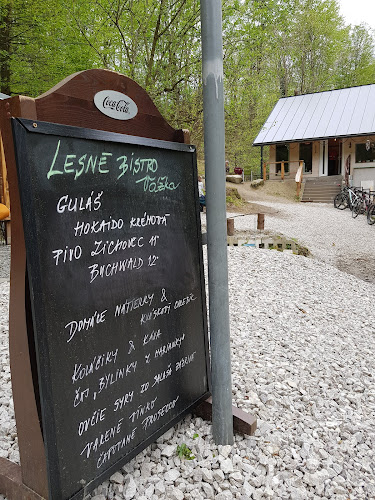 Coca-Cola
LESNÉ BISTRO
Vážka
GULÁŠ
HOKAIDO KRÉMOVÁ
PIVO ZICHOVEC 11°
BUCHWALD 12°
DOMÁCE NÁTIERKY &
KVÁSKOVÝ CHLEBÍK
KOLÁČIKY & KÁVA
ČAJ, BYLINKY Z
OVČIE SYRY ZO
VARENÉ VÍNKO
ČAPOVANÉ PROSECCO